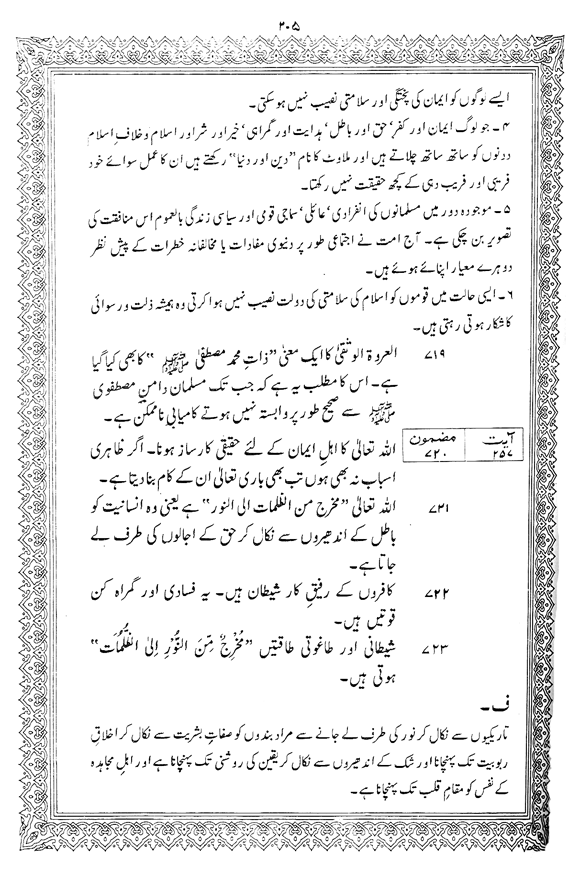 ۲۰۵
ایسے لوگوں کو ایمان کی پختگی اور سلامتی نصیب نہیں ہو سکتی۔
۴۔ جو لوگ ایمان اور کفر’ حق اور باطل’ ہدایت اور گمراہی’ خیر اور شر اور اسلام و خلافِ اسلام
دونوں کو ساتھ ساتھ چلاتے ہیں اور ملاوٹ کا نام ”دین اور دنیا“ رکھتے ہیں ان کا عمل سوائے خود
فریبی اور فریب دہی کے کچھ حقیقت نہیں رکھتا۔
۵۔ موجودہ دور میں مسلمانوں کی انفرادی’ عائلی’ سماجی قومی اور سیاسی زندگی بالعموم اس منافقت کی
تصویر بن چکی ہے۔ آج امت نے اجتماعی طور پر دنیوی مفادات یا مخالفانہ خطرات کے پیش نظر
دوہرے معیار اپنائے ہوئے ہیں۔
۶۔ ایسی حالت میں قوموں کو اسلام کی سلامتی کی دولت نصیب نہیں ہوا کرتی وہ ہمیشہ ذلت و رسوائی
کا شکار ہوتی رہتی ہیں۔
۷۱۹ العروۃ الوثقیٰ کا ایک معنیٰ ”ذاتِ محمد مصطفیٰ ﷺ“ کا بھی کیا گیا
ہے۔ اس کا مطلب یہ ہے کہ جب تک مسلمان دامنِ مصطفوی
ﷺ سے صحیح طور پر وابستہ نہیں ہوتے کامیابی ناممکن ہے۔
آیت ۲۵۷ مضمون ۷۲۰ اللہ تعالیٰ کا اہلِ ایمان کے لئے حقیقی کارساز ہونا۔ اگر ظاہری
اسباب نہ بھی ہوں تب بھی باری تعالیٰ ان کے کام بنا دیتا ہے۔
۷۲۱ اللہ تعالیٰ ”مخرج من الظلمات الی النور“ ہے یعنی وہ انسانیت کو
باطل کے اندھیروں سے نکال کر حق کے اجالوں کی طرف لے
جاتا ہے۔
۷۲۲ کافروں کے رفیقِ کار شیطان ہیں۔ یہ فسادی اور گمراہ کن
قوتیں ہیں۔
۷۲۳ شیطانی اور طاغوتی طاقتیں ”مُخْرِجٌ مِّنَ النُّوْرِ اِلیٰ الظُّلُمَات“
ہوتی ہیں۔
ف۔
تاریکیوں سے نکال کر نور کی طرف لے جانے سے مراد بندوں کو صفاتِ بشریت سے نکال کر اخلاقِ
ربوبیت تک پہنچانا اور شک کے اندھیروں سے نکال کر یقین کی روشنی تک پہنچانا ہے اور اہلِ مجاہدہ
کے نفس کو مقامِ قلب تک پہنچانا ہے۔